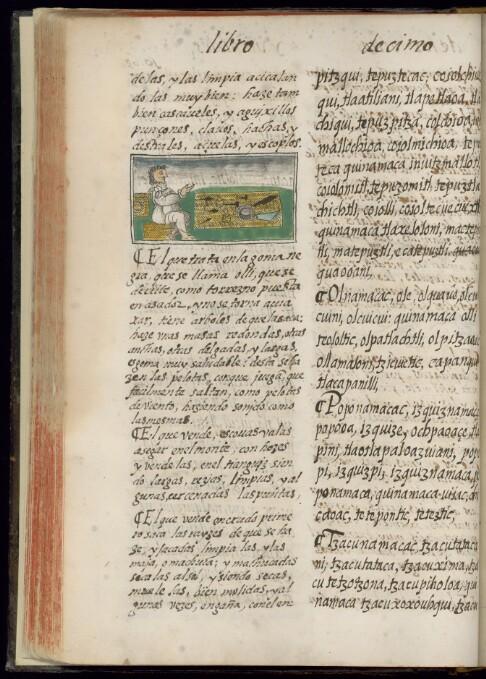 libro decimo
delas, y las limpia acicalan
do las muy bien: haze tam
bien cascaueles, y agujillas
punçones, clauos, hachas, y
destrales, açuelas, y escoplos.
¶ El que trata en la goma ne
gra, que se llama olli, que se
derrite, como torrezno puesta
en asador, y no se torna a qua
xar, tiene arboles de que la saca:
haze unas masas redondas, otras
anchas, otras delgadas, y largas,
es goma muy saludable: desta se ha
zen las pelotas, conque juega, que
facilmente saltan, como pelotas
de viento, haziendo sonido como
las mesmas.
¶ El que vende, escouas va las
a segar en el monte, con hozes
y vende las, en el tianquiz sien
do largas, rezias, limpias, y al
gunas cercenadas las puntas,
¶ El que vende engrudo prime
ro saca las rayzes de que se ha
ze, y sacadas limpia las, y las
maja, o machuca; y machucadas
seca las al sol, y siendo secas,
muele las, bien molidas, y al
gunas vezes, engaña, con el en
pitzqui, tepuztecac, cosolchiuh
qui, tlaatiliani, tlapetlaoa, tla
chiqui, tepuzpitza,
mallichioa, cosolmichioa,
teca quinamaca
coiolomitl, tepuzomitl, tepuztla
chichtli, coiolli,
quinamaca tlaxeloloni, matepuz
tli, matepuztli,
quaooani,
¶ Olnamacac, ole, olquavo, olcui
cuini, olcuicui: quinamaca olli
teololtic, olpatlachtli, olpitzaoac
ollamaloni, tzicuictic, capanqui
tlacapanilli,
¶ Poponamacac, izquiznamaca
popooa, izquize, ochpaoaçe, tla
pini, tlaotlapaloazuiani, popo
pi, izquizpi, izquiznamaca, po
ponamaca, quinamaca uitac, ca
caoac, tetepontic, teteztic,
¶ Tzacunamacac, tzacutataca
ni, tzacutataca, tzacuxima, tza
cutetzotzona, tzacupiholoa, qui
namaca tzacuxoxouhqui, tzacu